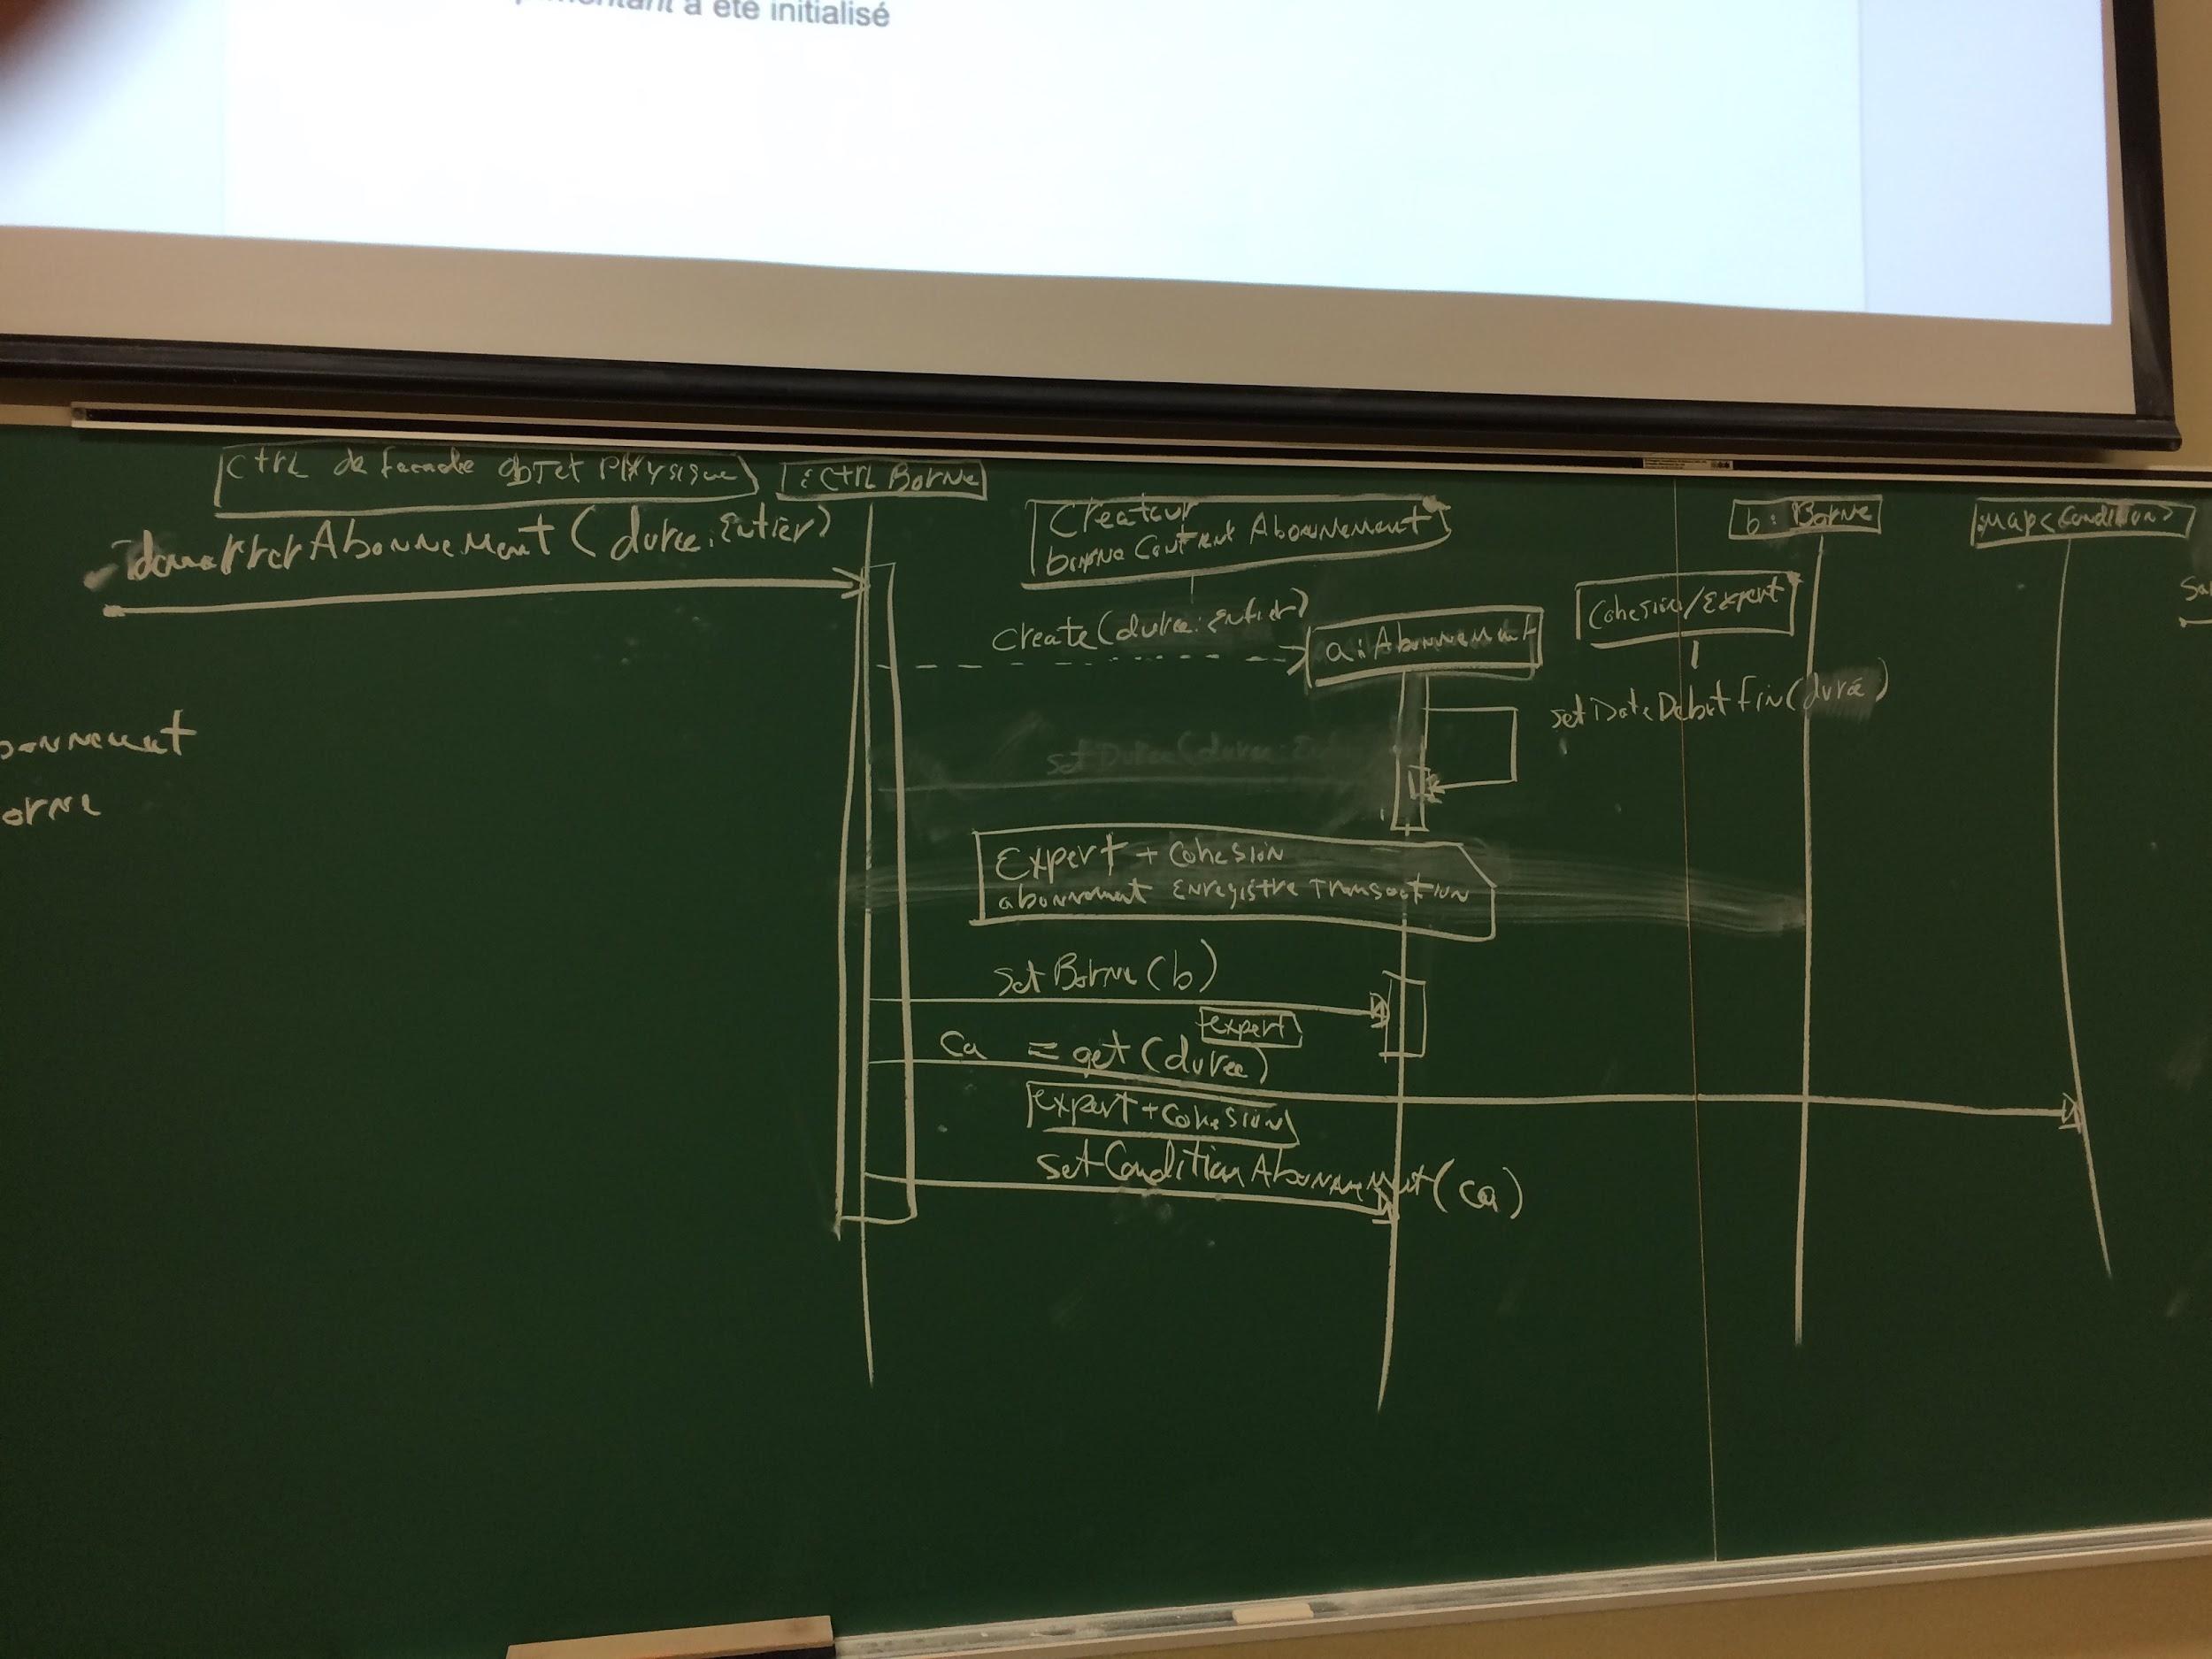 a été initialisé
Ctrl de facade objet physique
: Ctrl Borne
demarrerAbonnement (duree: Entier)
Createur
borne Contient Abonnement
b: Borne
:Map<Condition>
create(duree: Entier)
a: Abonnement
Cohesion/Expert
setDateDebutFin(durée)
setDuree(duree: Entier
Expert + Cohesion
abonnement Enregistre Transaction
setBorne(b)
expert
ca = get(duree)
expert + Cohesion
setConditionAbonnement(ca)